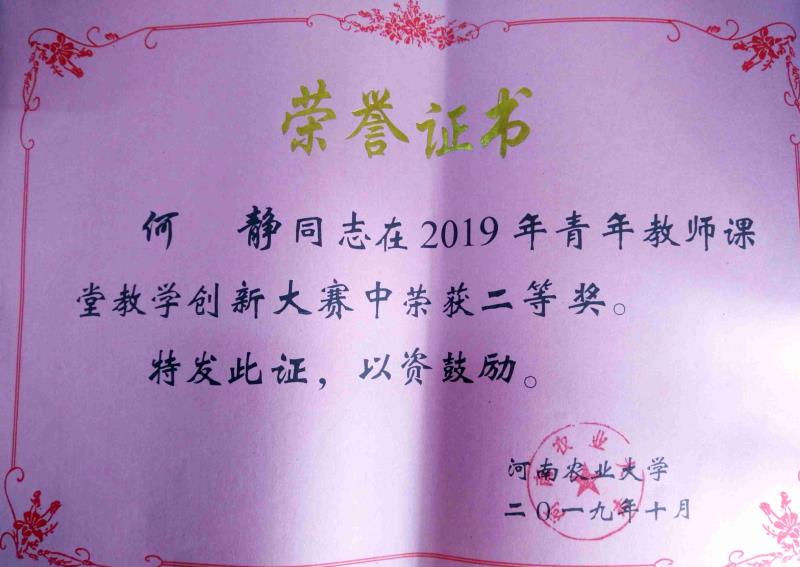 荣誉证书
何 静同志在2019年青年教师课
堂教学创新大赛中荣获二等奖。
特发此证，以资鼓励。
河南农业大学
二〇一九年十月